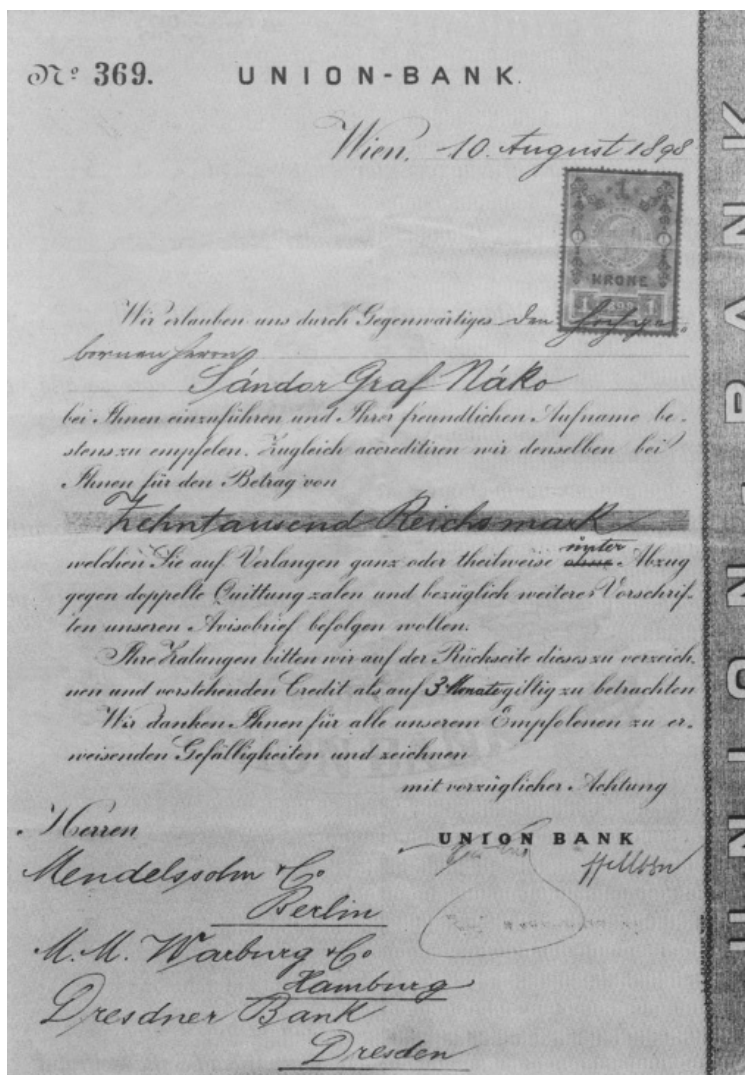 No 369. UNION-BANK.
Wien, 10. August 1898
KRONE
1 1898 1
Wir erlauben uns durch Gegenwärtiges den hochge-
bornen Herrn
Sándor Graf Náko
bei Ihnen einzuführen und Ihrer freundlichen Aufname be-
stens zu empfelen. Zugleich accreditiren wir denselben bei
Ihnen für den Betrag von
Zehntausend Reichsmark
welchen Sie auf Verlangen ganz oder theilweise ohne unter Abzug
gegen doppelte Quittung zalen und bezüglich weiterer Vorschrif-
ten unseren Avisobrief befolgen wollen.
Ihre Zalungen bitten wir auf der Rückseite dieses zu verzeich-
nen und vorstehenden Credit als auf 3 Monate giltig zu betrachten
Wir danken Ihnen für alle unserem Empfolenen zu er-
weisenden Gefälligkeiten und zeichnen
mit vorzüglicher Achtung
UNION BANK
Herren
Mendelssohn & Co
Berlin
M. M. Warburg & Co
Hamburg
Dresdner Bank
Dresden
UNION-BANK